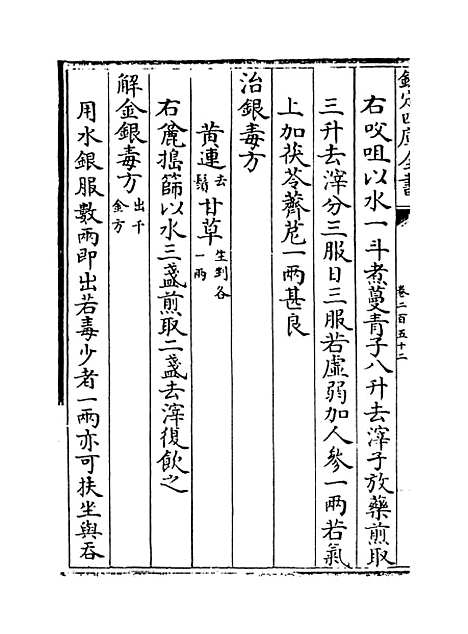 欽定四庫全書
卷二百五十二
右㕮咀以水一斗煮蔓青子八升去滓子放藥煎取
三升去滓分三服日三服若虛弱加人參一兩若氣
上加茯苓薺苨一兩甚良
治銀毒方
黃連去鬚甘草生剉各一兩
右麄搗篩以水三盞煎取二盞去滓復飲之
解金銀毒方出千金方
用水銀服數兩即出若毒少者一兩亦可扶坐與吞